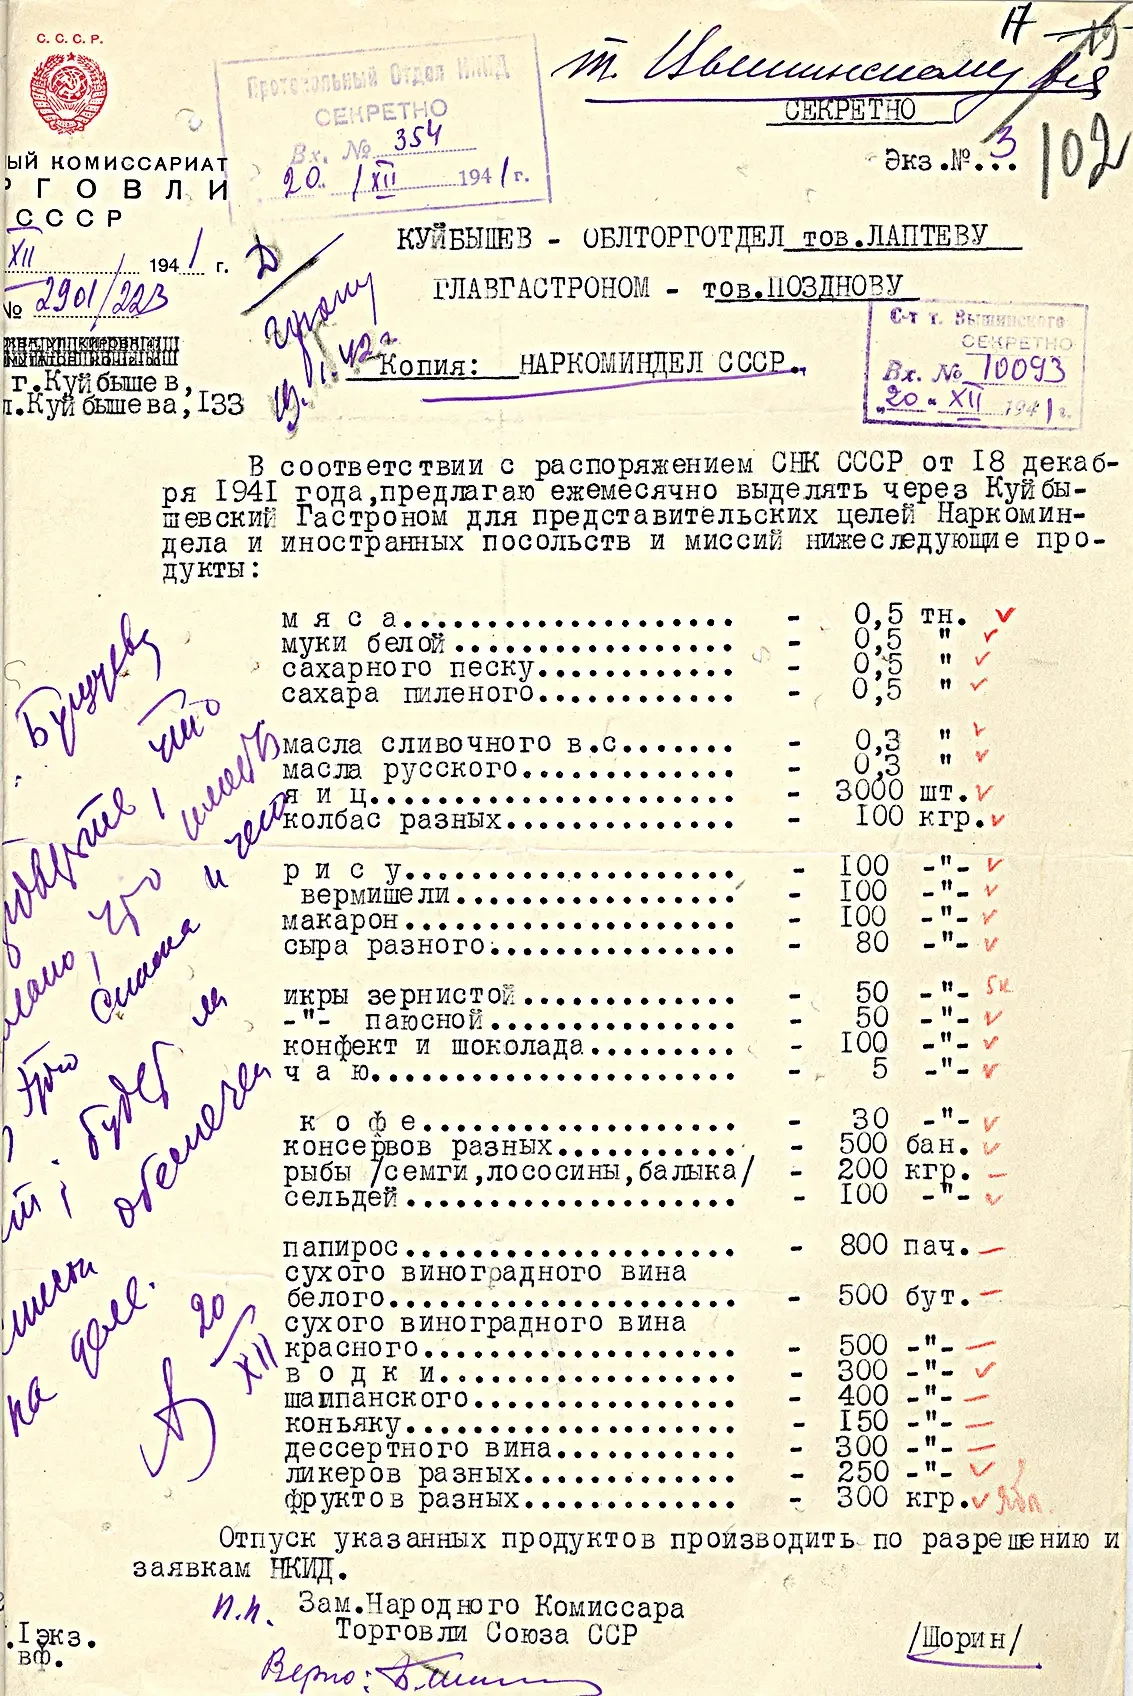 17
С. С. С. Р.
Протокольный Отдел НКИД
СЕКРЕТНО
Вх. № 354
20 / XII 1941 г.
т. Вышинскому
СЕКРЕТНО
Экз.№.3..
102
ЫЙ КОМИССАРИАТ
РГОВЛИ
СССР
XII 1941 г.
№ 2901/223
г.Куйбышев,
л.Куйбышева,133
КУЙБЫШЕВ - ОБЛТОРГОТДЕЛ тов.ЛАПТЕВУ
ГЛАВГАСТРОНОМ - тов.ПОЗДНОВУ
Копия: НАРКОМИНДЕЛ СССР.
19.I.42г.
С-т т. Вышинского
СЕКРЕТНО
Вх. № 10093
"20" XII 1941 г.
В соответствии с распоряжением СНК СССР от 18 декаб-
ря 1941 года,предлагаю ежемесячно выделять через Куйбы-
шевский Гастроном для представительских целей Наркомин-
дела и иностранных посольств и миссий нижеследующие про-
дукты:
м я с а..................... - 0,5 тн.
муки белой.................. - 0,5 "
сахарного песку............. - 0,5 "
сахара пиленого............. - 0,5 "
масла сливочного в.с....... - 0,3 "
масла русского............. - 0,3 "
я и ц....................... - 3000 шт.
колбас разных............... - 100 кгр.
р и с у..................... - 100 -"-
вермишели.................. - 100 -"-
макарон..................... - 100 -"-
сыра разного................ - 80 -"-
икры зернистой............. - 50 -"- 5к
-"- паюсной............... - 50 -"-
конфект и шоколада......... - 100 -"-
ч а ю....................... - 5 -"-
к о ф е.................... - 30 -"-
консервов разных........... - 500 бан.
рыбы /семги,лососины,балыка/ - 200 кгр.
сельдей..................... - 100 -"-
папирос..................... - 800 пач.
сухого виноградного вина
белого...................... - 500 бут.
сухого виноградного вина
красного.................... - 500 -"-
в о д к и................... - 300 -"-
шампанского................ - 400 -"-
коньяку..................... - 150 -"-
дессертного вина........... - 300 -"-
ликеров разных............. - 250 -"-
фруктов разных............. - 300 кгр.
что
иметь
и чего
будет ли
обеспечен
на деле.
20
XII
Отпуск указанных продуктов производить по разрешению и
заявкам НКИД.
п.п. Зам.Народного Комиссара
Торговли Союза ССР /Шорин/
.1экз.
вф.
Верно: